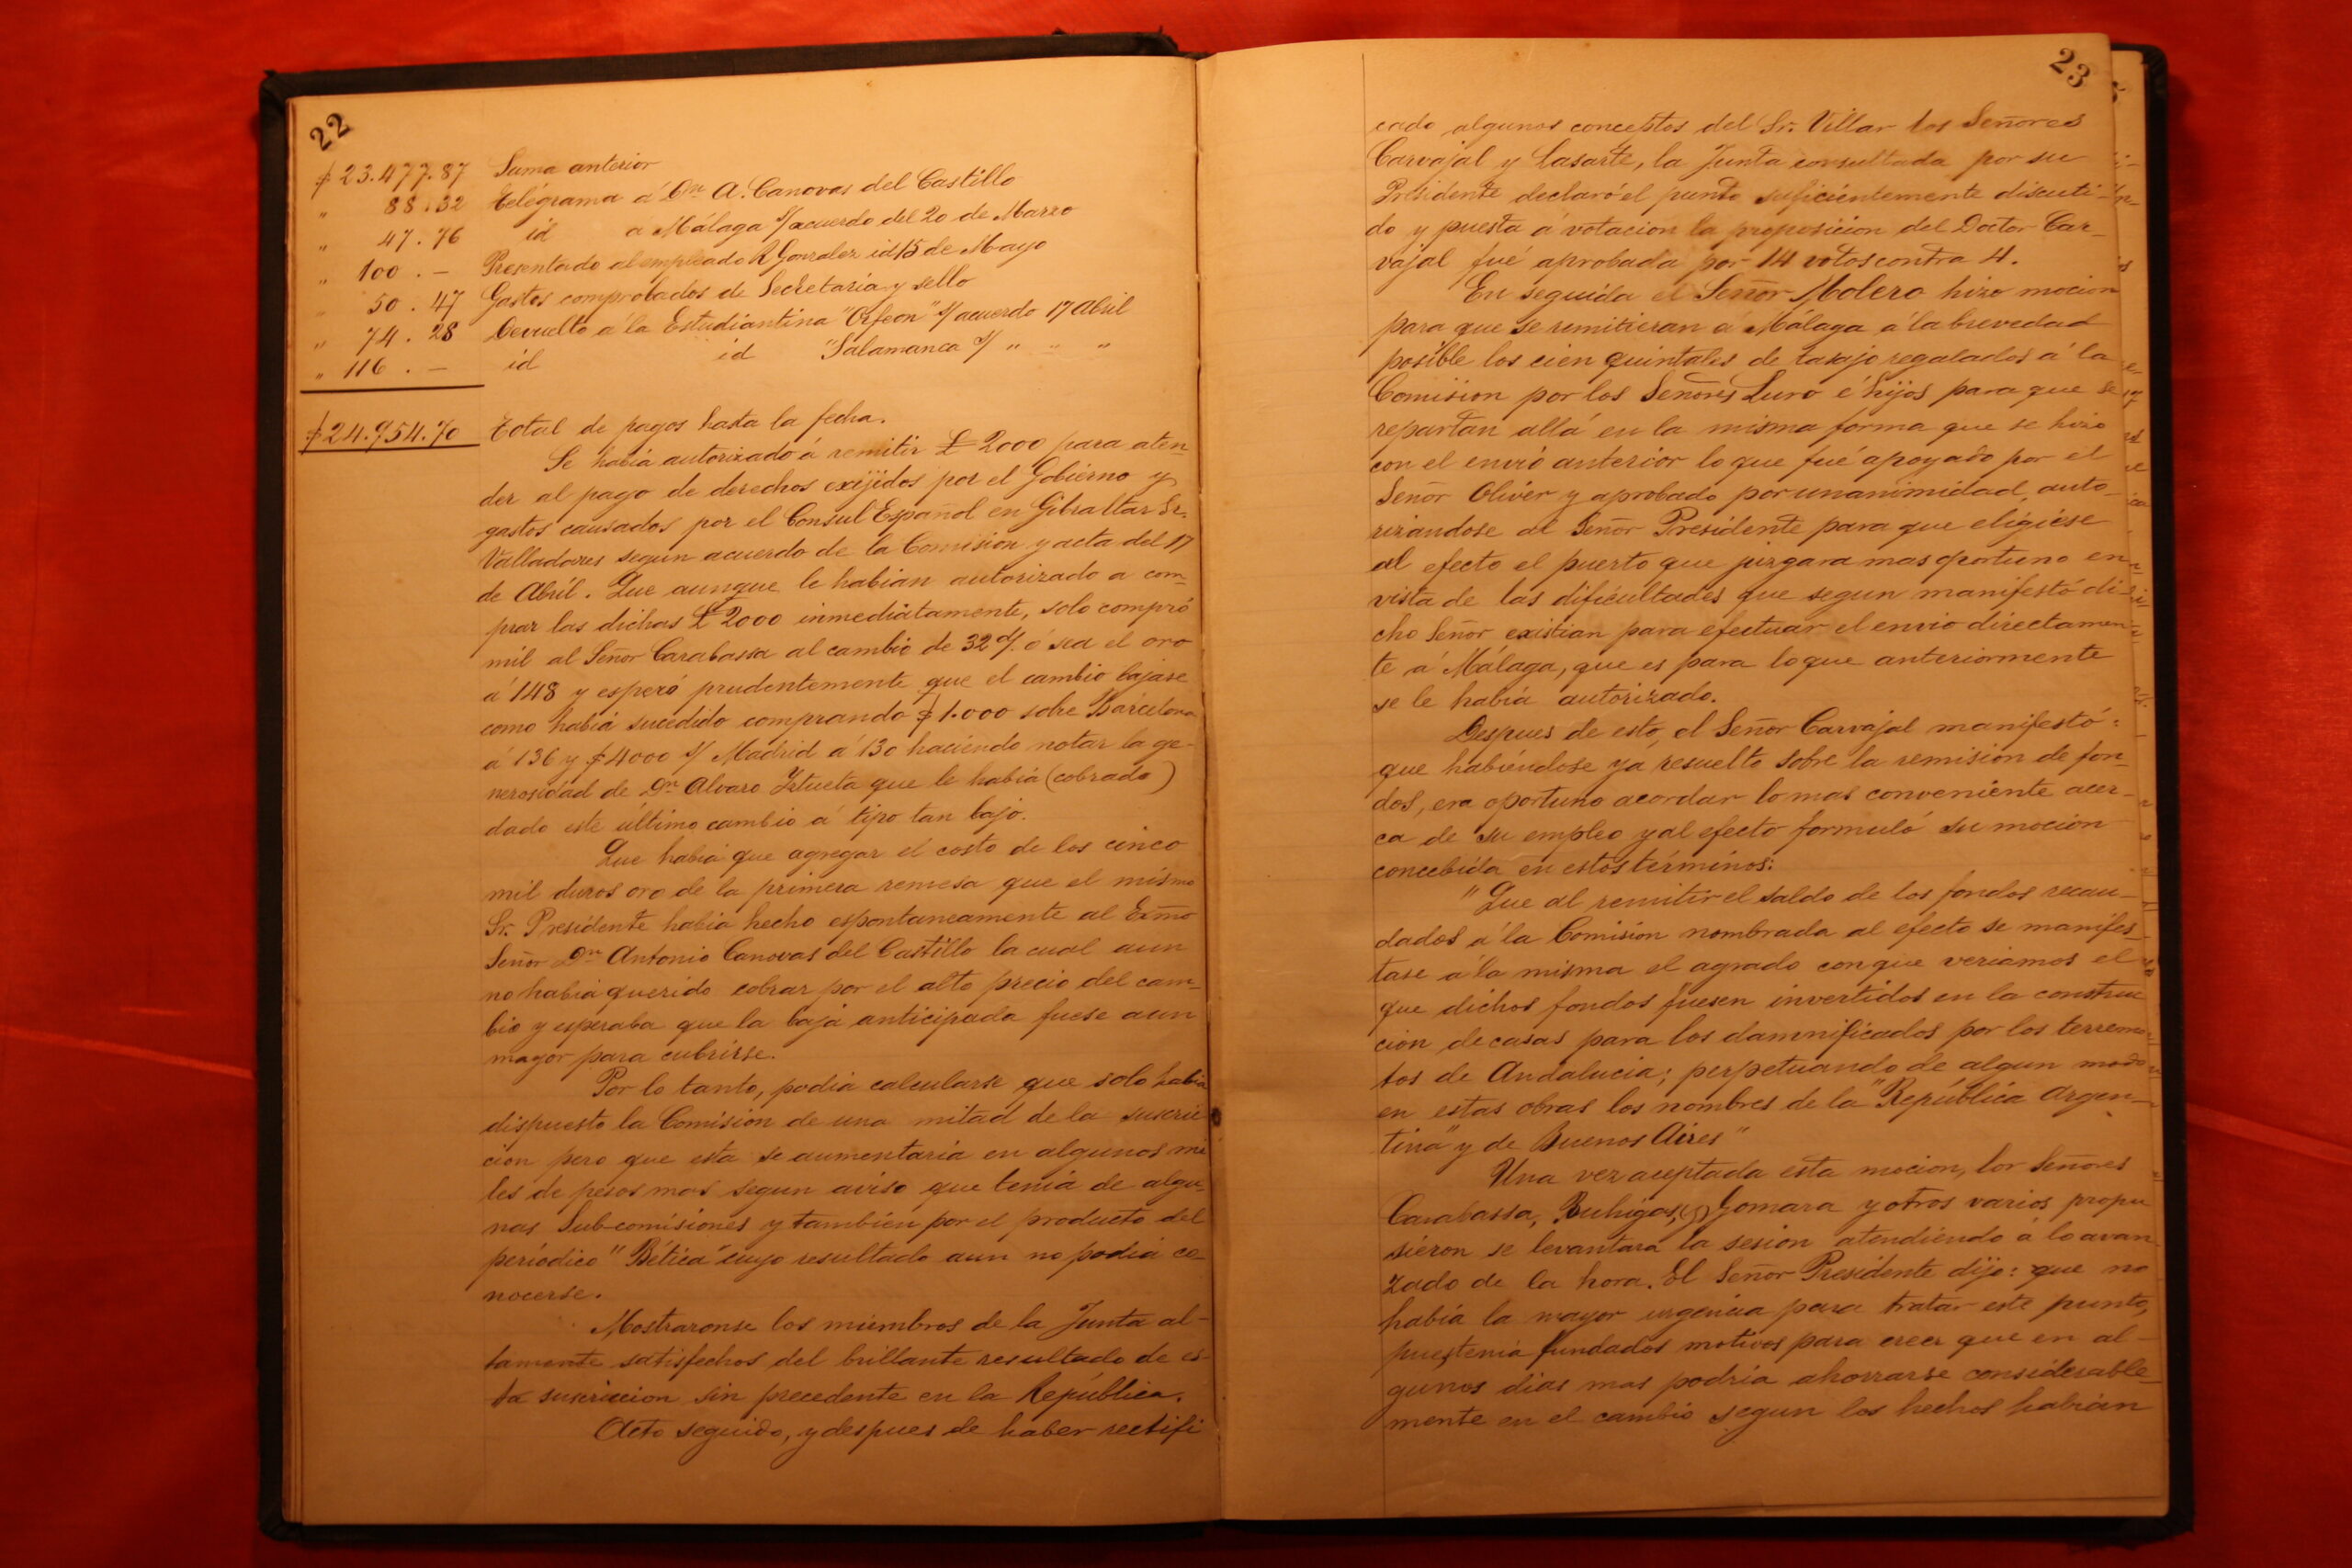 22
$ 23.477.87 Suma anterior
" 88.32 Telégrama á Dn A. Canovas del Castillo
" 47.76 id a Málaga s/ acuerdo del 20 de Marzo
" 100.- Presentado al empleado R Gonzalez id 15 de Mayo
" 50.47 Gastos comprobados de Secretaria y sello
" 74.28 Devuelto á la Estudiantina "Orfeon" s/ acuerdo 17 Abril
" 116.- id id "Salamanca s/ " " "
$ 24.954.70 Total de pagos hasta la fecha.
Se habia autorizado á remitir £ 2000 para aten-
der al pago de derechos exijidos por el Gobierno y
gastos causados por el Consul Español en Gibraltar Sr.
Valladares segun acuerdo de la Comision y acta del 17
de Abril. Que aunque le habian autorizado a com-
prar las dichas £ 2000 inmediatamente, solo compró
mil al Señor Carabassa al cambio de 32 d/. ó sea el oro
á 148 y esperó prudentemente que el cambio bajase
como habia sucedido comprando $ 1.000 sobre Barcelona
á 136 y $ 4000 s/ Madrid á 130 haciendo notar la ge-
nerosidad de Dn Alvaro Iztueta que le habia (cobrado)
dado este último cambio á tipo tan bajo.
Que habia que agregar el costo de los cinco
mil duros oro de la primera remesa que el mismo
Sr. Presidente habia hecho espontaneamente al Exmo
Señor Dn Antonio Canovas del Castillo la cual aun
no habia querido cobrar por el alto precio del cam-
bio y esperaba que la baja anticipada fuese aun
mayor para cubrirse.
Por lo tanto, podia calcularse que solo habia
dispuesto la Comision de una mitad de la suscric
cion pero que esta se aumentaria en algunos mi
les de pesos mas segun aviso que tenia de algu-
nas Sub-comisiones y tambien por el producto del
periodico "Bética" cuyo resultado aun no podia co-
nocerse.
Mostraronse los miembros de la Junta al-
tamente satisfechos del brillante resultado de es-
ta suscriccion sin precedente en la República.
Acto seguido, y despues de haber rectifi
23
cado algunos conceptos del Sr. Villar los Señores
Carvajal y Lasarte, la Junta consultada por su
Presidente declaró el punto suficientemente discuti-
do y puesta á votacion la proposicion del Doctor Car-
vajal fué aprobada por 14 votos contra 4.
En seguida el Señor Molero hizo mocion
para que se remitieran á Málaga á la brevedad
posible los cien quintales de tasajo regalados á la
Comision por los Señores Luro é hijos para que se
repartan allá en la misma forma que se hizo
con el envió anterior lo que fué apoyado por el
Señor Oliver y aprobado por unanimidad, auto-
rizandose al Señor Presidente para que eligiese
al efecto el puerto que juzgara mas oportuno en
vista de las dificultades que segun manifestó di-
cho Señor existian para efectuar el envio directamen-
te á Málaga, que es para lo que anteriormente
se le habia autorizado.
Despues de esto, el Señor Carvajal manifestó:
que habiéndose ya resuelto sobre la remision de fon-
dos, era oportuno acordar lo mas conveniente acer-
ca de su empleo y al efecto formuló su mocion
concebida en estos términos:
"Que al remitir el saldo de los fondos recau-
dados á la Comision nombrada al efecto se manifes-
tase á la misma el agrado con que veriamos el
que dichos fondos fuesen invertidos en la construc
cion de casas para los damnificados por los terremo-
tos de Andalucia; perpetuando de algun modo
en estas obras los nombres de la "República Argen-
tina" y de Buenos Aires"
Una vez aceptada esta mocion, los Señores
Carabassa, Buhigas, (y) Gomara y otros varios propu
sieron se levantara la sesion atendiendo á lo avan
zado de la hora. El Señor Presidente dijo: que no
habia la mayor urgencia para tratar este punto,
pues tenia fundados motivos para creer que en al-
gunos dias mas podria ahorrarse considerable-
mente en el cambio segun los hechos habian